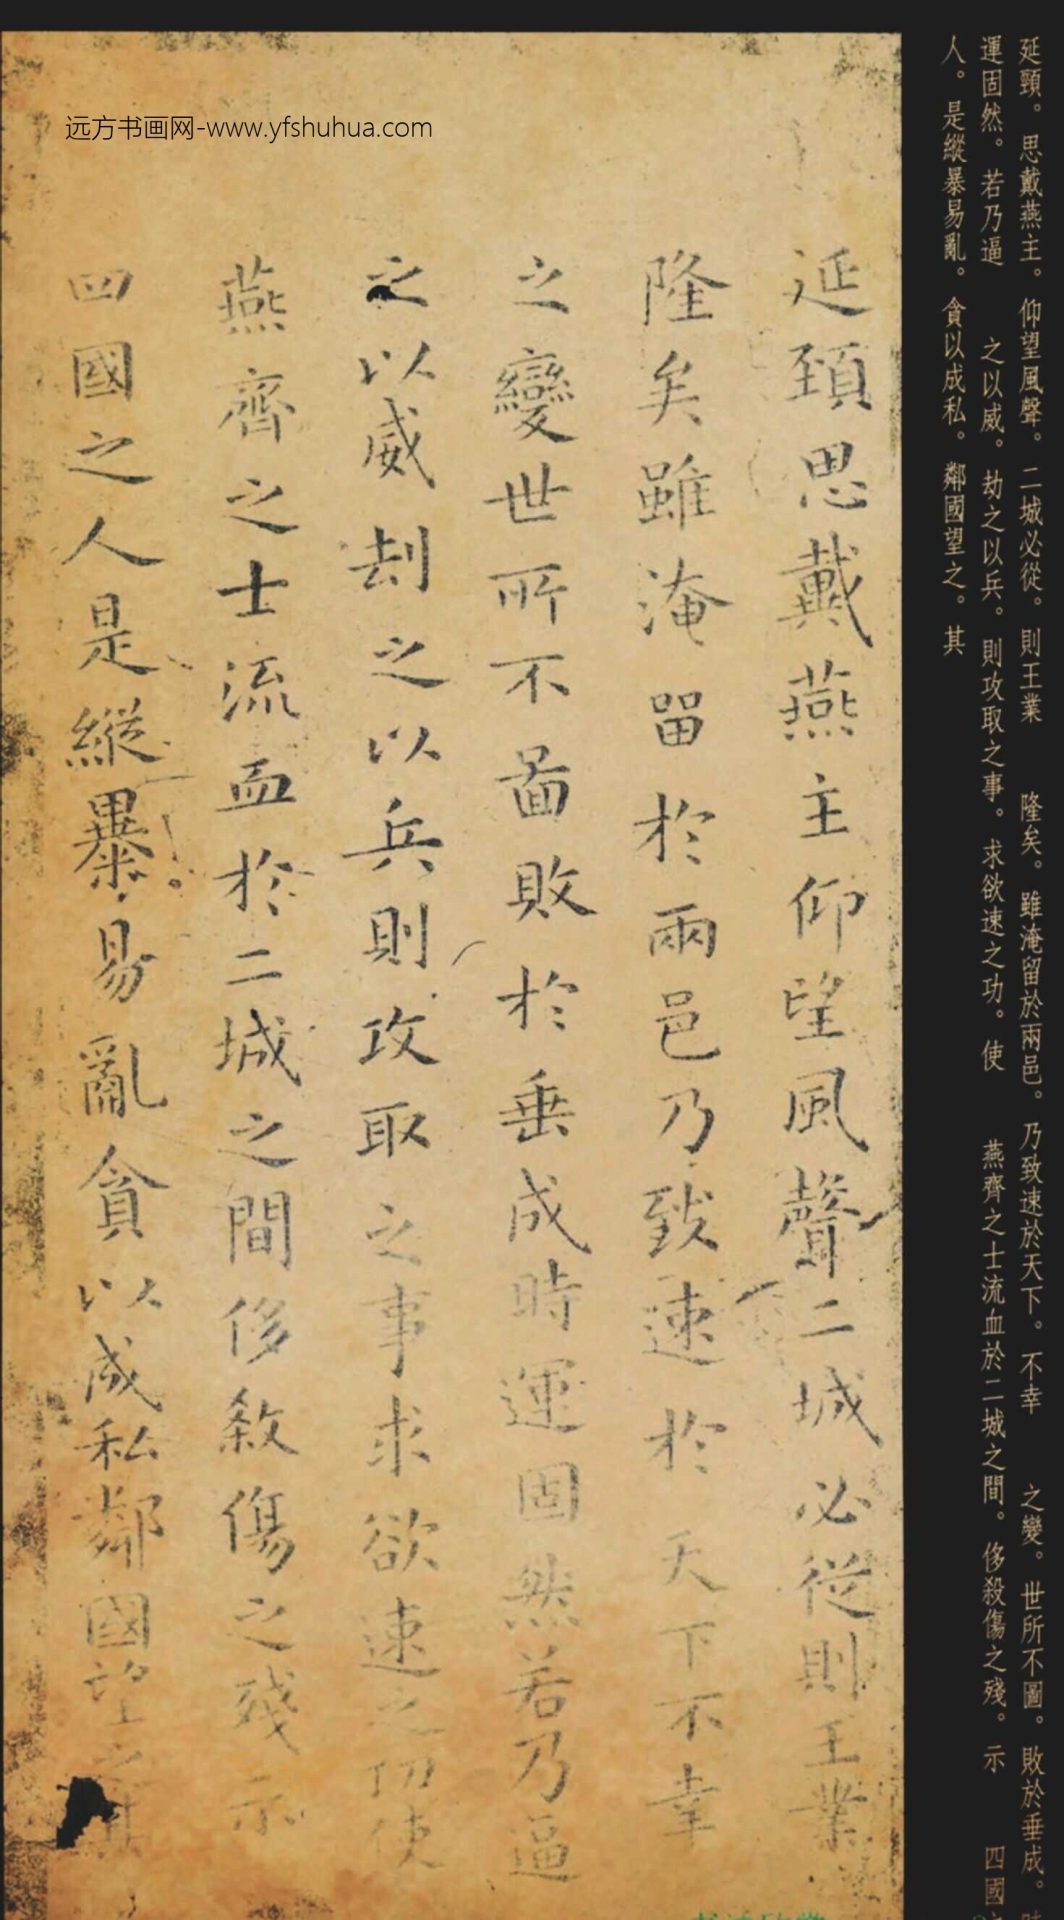 远方书画网-www.yfshuhua.com
延頸思戴燕主仰望風聲二城必從則王業
隆矣雖淹留於兩邑乃致速於天下不幸
之變世所不圖敗於垂成時運固然若乃逼
之以威劫之以兵則攻取之事求欲速之功使
燕齊之士流血於二城之間侈殺傷之殘示
四國之人是縱暴易亂貪以成私鄰國望之其
延頸。思戴燕主。仰望風聲。二城必從。則王業 隆矣。雖淹留於兩邑。乃致速於天下。不幸 之變。世所不圖。敗於垂成。時
運固然。若乃逼 之以威。劫之以兵。則攻取之事。求欲速之功。使 燕齊之士流血於二城之間。侈殺傷之殘。示 四國之
人。是縱暴易亂。貪以成私。鄰國望之。其